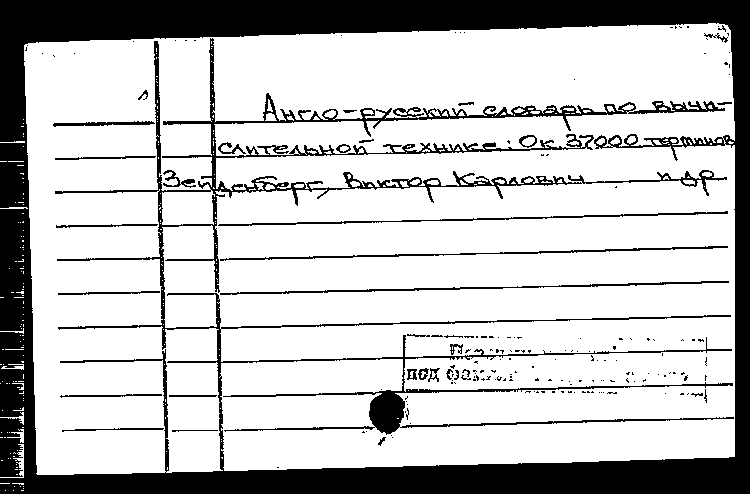 Англо-русский словарь по вычи-
слительной технике: Ок. 37000 терминов
Зейденберг, Виктор Карлович и др
под